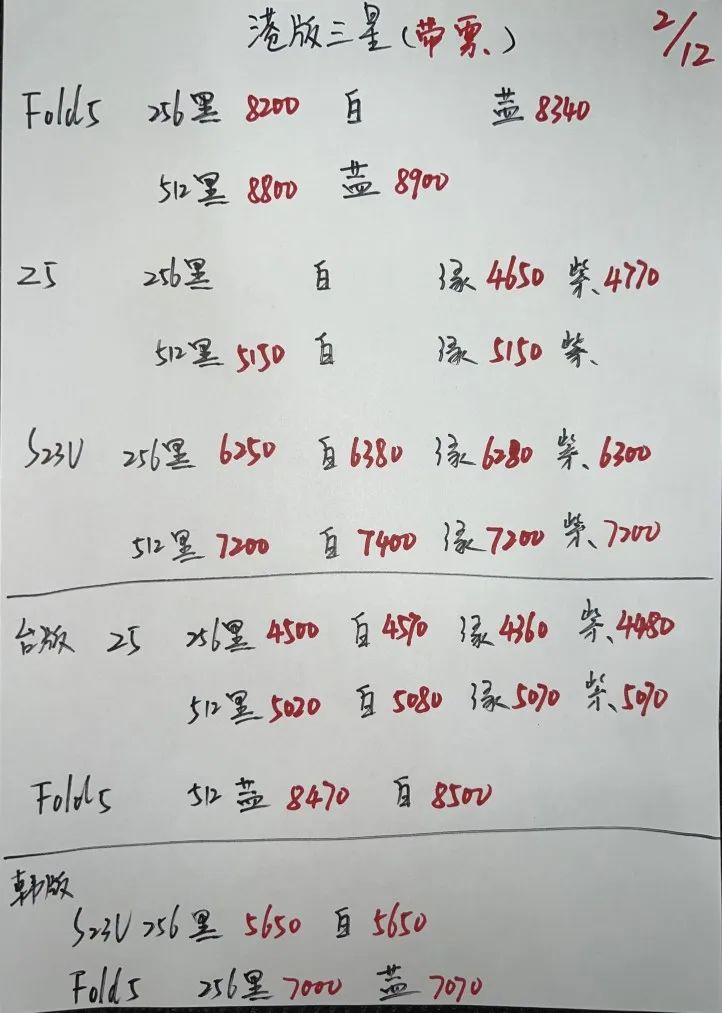 港版三星(带票) 2/12
Fold5 256黑 8200 白 蓝 8340
512黑 8800 蓝 8900
Z5 256黑 白 绿 4650 紫 4770
512黑 5150 白 绿 5150 紫
S23U 256黑 6250 白 6380 绿 6280 紫 6300
512黑 7200 白 7400 绿 7200 紫 7200
台版 Z5 256黑 4500 白 4570 绿 4360 紫 4480
512黑 5020 白 5080 绿 5070 紫 5070
Fold5 512 蓝 8470 白 8500
韩版
S23U 256黑 5650 白 5650
Fold5 256黑 7000 蓝 7070